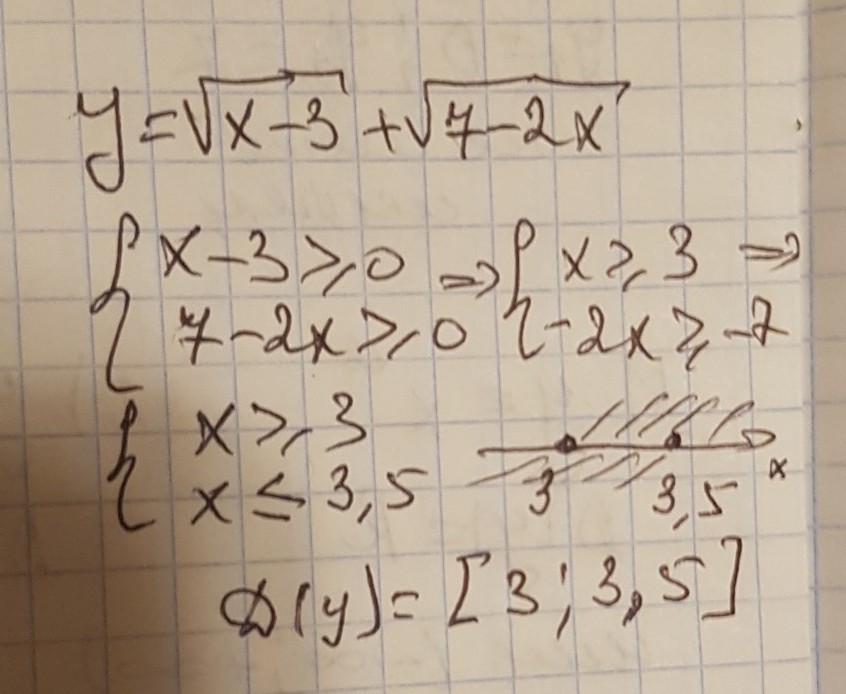 y = √(x-3) + √(7-2x)
{ x-3 ⩾ 0 ⇒ { x ⩾ 3 ⇒
7-2x ⩾ 0 -2x ⩾ -7
{ x ⩾ 3
x ≤ 3,5
3 3,5 x
D(y) = [3; 3,5]